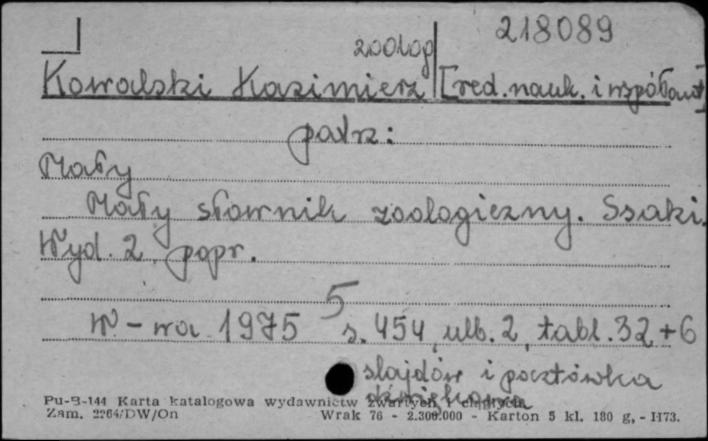 218089
zoolog
Kowalski Kazimierz [red. nauk. i współaut]
patrz:
Mały
Mały słownik zoologiczny. Ssaki.
Wyd. 2, popr.
5
W-wa 1975 s. 454, ulb. 2, tabl. 32 + 6
slajdów i pocztówka
dźwiękowa
Pu-B-144 Karta katalogowa wydawnictw zwartych i ciągłych
Zam. 2264/DW/On Wrak 76 - 2.300.000 - Karton 5 kl. 180 g, - H73.